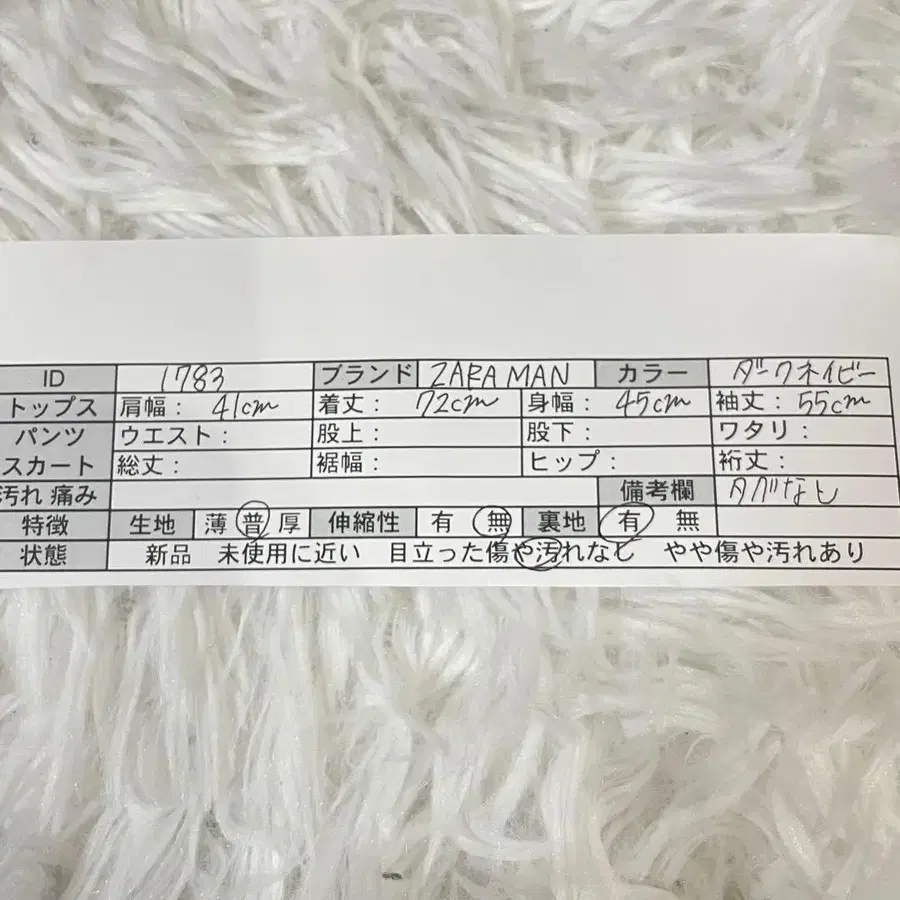 ID 1783 ブランド ZARA MAN カラー ダークネイビー
トップス 肩幅： 41cm 着丈： 72cm 身幅： 45cm 袖丈： 55cm
パンツ ウエスト： 股上： 股下： ワタリ：
スカート 総丈： 裾幅： ヒップ： 裄丈：
汚れ 痛み 備考欄 タグなし
特徴 生地 薄 普 厚 伸縮性 有 無 裏地 有 無
状態 新品 未使用に近い 目立った傷や汚れなし やや傷や汚れあり